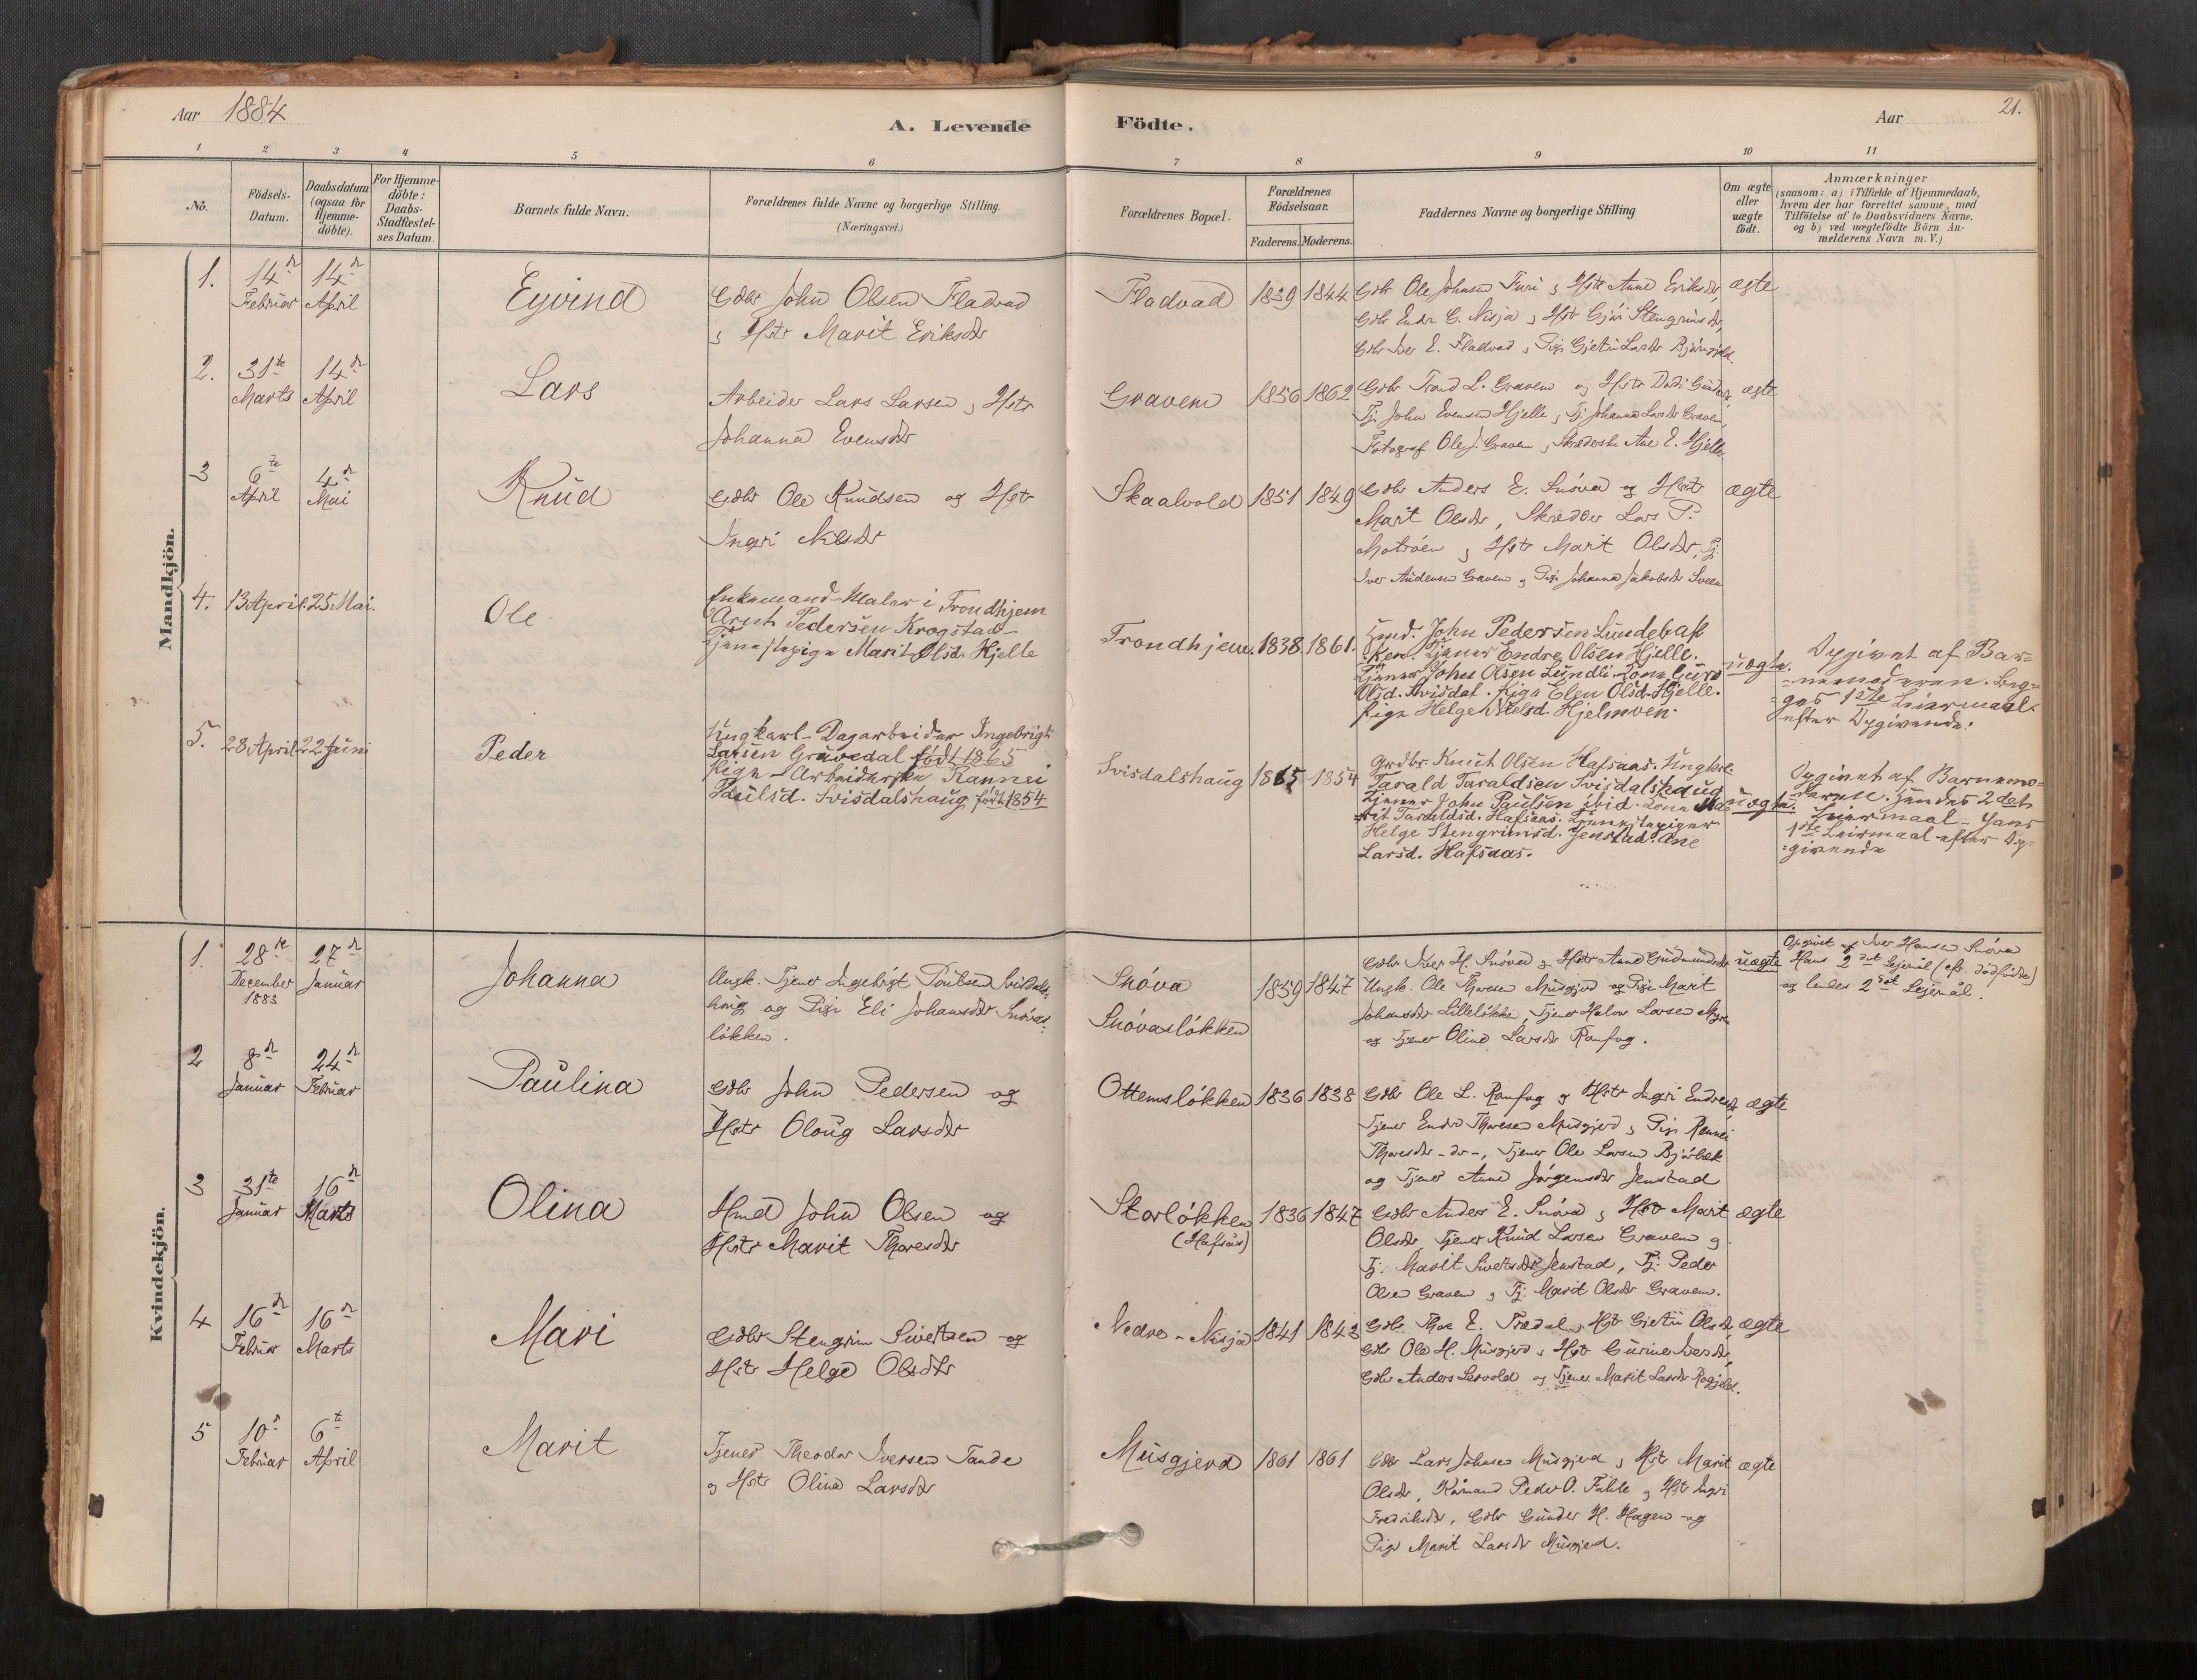 Aar 1884
A. Levende Födte.
Aar
21.
1 2 3 4 5 6 7 8 9 10 11
No.
Födsels-
Datum.
Daabsdatum
(ogsaa for
Hjemme-
döbte).
For Hjemme-
döbte:
Daabs-
Stadfæstel-
ses Datum.
Barnets fulde Navn.
Forældrenes fulde Navne og borgerlige Stilling.
(Næringsvei.)
Forældrenes Bopæl.
Forældrenes
Födselsaar.
Faderens. Moderens.
Faddernes Navne og borgerlige Stilling
Om ægte
eller
uægte
födt.
Anmærkninger
(saasom: a) i Tilfælde af Hjemmedaab,
hvem der har forrettet samme, med
Tilföielse af to Daabsvidners Navne,
og b) ved uægtefödte Börn An-
melderens Navn m. V.)
Mandkjön.
1.
14de
Februar
14de
April
Eyvind
Gdbr John Olsen Fladvad
og Hstr Marit Eriksdtr
Fladvad
1839 1844
Gdbr Ole Johnsen Furi og Hstr Anne Eriksdtr,
Gdbr Endr E. Nisja og Hstr Gjöri Stengrimsdtr,
Gdbr Iver E. Fladvad og Pige Gjetru Larsdtr
ægte
2.
31te
Marts
14de
April
Lars
Arbeider Lars Larsen og Hstr
Johanna Evensdtr
Gravem
1856 1862
Gdbr Trond L. Gravem og Hstr
Tj. John Evensen Hjelle og Tj. Johanna Larsdtr Gravem,
Fotograf Ole J. Gravem og Ane E. Hjelle
ægte
3
6te
April
4de
Mai
Knud
Gdbr Ole Knudsen og Hstr
Ingri Nilsdtr
Skaalvold
1851 1849
Gdbr Anders E. Snöva og Hstr
Marit Olsdtr, Skrædder Lars P.
Motröen og Hstr Marit Olsdtr, Tj.
Iver Andersen Gravem og Pige Johanna Jakobsdtr Sveen
ægte
4.
13 April. 25 Mai.
Ole
Enkemand - Maler i Trondhjem
Arnt Pedersen Krogstad -
Tjenestepige Marit Olsd. Hjelle
Trondhjem. 1838. 1861.
Hmd. John Pedersen Lundebak
ken. Tjener Endre Olsen Hjelle.
Tjener John Olsen Lundli. Kone Guro
Olsd. Svisdal. Pige Elen Olsd. Hjelle.
Pige Helge Nielsd. Hjelmoen.
uægte.
Opgivet af Bar=
=nemoderen. Beg=
=ges 1ste Leiermaal
efter Opgivende.
5.
28 April 22 Juni
Peder
Ungkarl - Dagarbeider Ingebrigt
Larsen Gravedal født 1865
Pige - Arbeiderske Rannei
Paulsd. Svisdalshaug født 1854
Svisdalshaug 1865 1854
Grdbr. Knut Olsen Hafsaas. Ungkrl.
Tarald Taraldsen Svisdalshaug
Tjener John Paulsen ibid. Kone Ma=
=rit Taraldsd. Hafsaas. Tjenestepiger
Helge Stengrimsd. Jenstad. Ane
Larsd. Hafsaas.
uægte.
Opgivet af Barnemo=
deren. Hendes 2det
Leiermaal - Hans
1ste Leiermaal efter Op=
=givende
Kvindekjön.
1.
28de
December
1883
27de
Januar
Johanna
Ungk. Tjener Ingebrigt Poulsen Svisdals-
haug og Pige Eli Johansdtr Snövas-
lökken.
Snöva
Snövaslökken
1859 1847
Gdbr Iver H. Snöva og Hstr Anne Gudmundsdtr
Ungk. Ole Thoresen Musgjerd og Pige Marit
Johansdtr Lillelökken, Tjener Halvor Larsen Myren
og Tjener Olina Larsdtr Ramfog.
uægte
Opgivet af Iver Hansen Snöva
Hans 2det Lejemål (eft. dödfödte)
og hendes 2det Lejemål.
2
8de
Januar
24de
Februar
Paulina
Gdbr John Pedersen og
Hstr Oloug Larsdtr
Ottemslökken 1836 1838
Gdbr Ole L. Ramfog og Hstr Ingri Endresdtr
Tjener Endre Thoresen Musgjerd og Pige Rannei
Thoresdtr -do-, Tjener Ole Larsen Bjørbæk
og Tjener Anne Jörgensdtr Jenstad
ægte
3
31te
Januar
16de
Marts
Olina
Hmd John Olsen og
Hstr Marit Thoresdtr
Storlökken
(Hafsås)
1836 1847
Gdbr Anders E. Snöva og Hstr Marit
Olsdtr Tjener Knud Larsen Gravem og
Tj. Marit Sivertsdtr Jenstad, Tj. Peder
Olsen Gravem og Tj. Marit Olsdtr Gravem.
ægte
4
16de
Februar
16de
Marts
Mari
Gdbr Stengrim Sivertsen og
Hstr Helge Olsdtr
Nedre - Nisja 1841 1843
Gdbr Thore E. Trædal og Hstr Gjetru Olsdtr,
Gdbr Ole H. Musgjerd og Hstr Gurine Iversdtr,
Gdbr Anders Lervold og Tjener Marit Larsdtr
ægte
5
10de
Februar
6te
April
Marit
Tjener Theodor Iversen Tande
og Hstr Olina Larsdtr
Musgjerd 1861 1861
Gdbr Lars Johnsen Musgjerd og Hstr Marit
Olsdtr, Kårmand Peder O. Fahle og Hstr Ingri
Fredriksdtr, Gdbr Gunder H. Hagen og
Pige Marit Larsdtr Musgjerd.
ægte